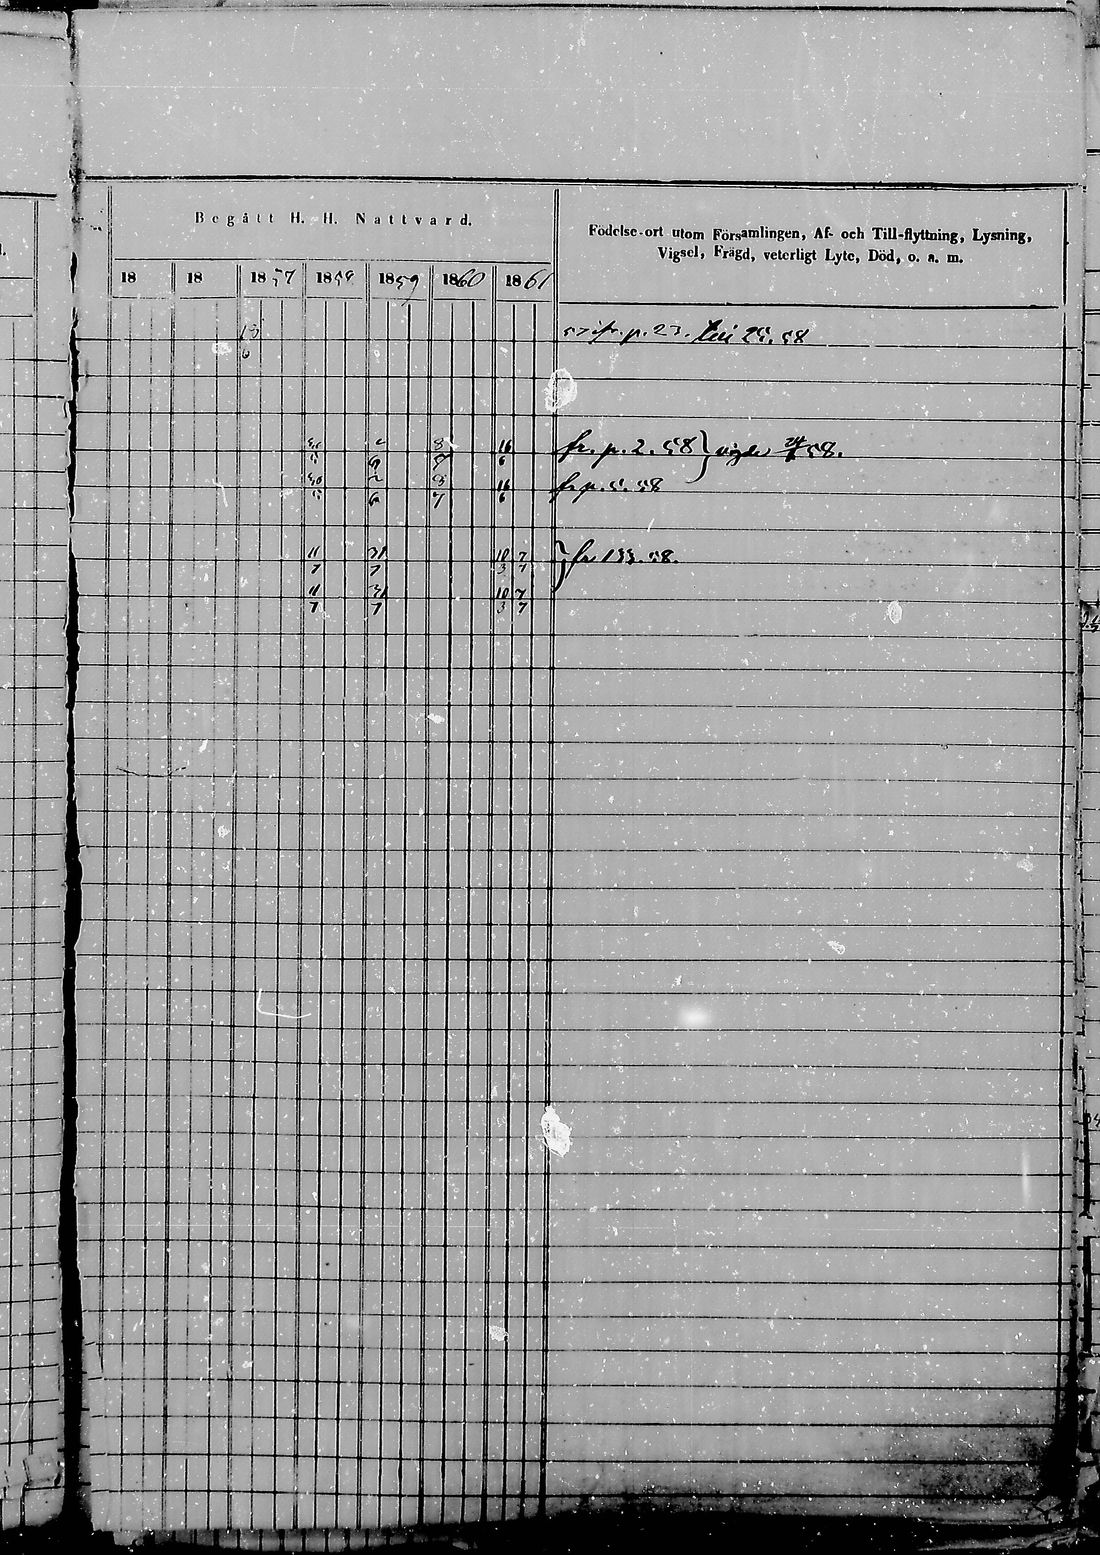 Begått H. H. Nattvard.
Födelse-ort utom Församlingen, Af- och Till-flyttning, Lysning,
Vigsel, Frägd, veterligt Lyte, Död, o. a. m.
18 18 1857 1858 1859 1860 1861
13 p. 23. 25. 58
6
2 8 16 fr. p. 2. 58 } vigde 24/6 58.
6 7 6
2 8 16 fr. p. 5. 58
6 7 6
11 31 10 7 } fr 133. 58.
7 7 3 7
11 31 10 7
7 7 3 7